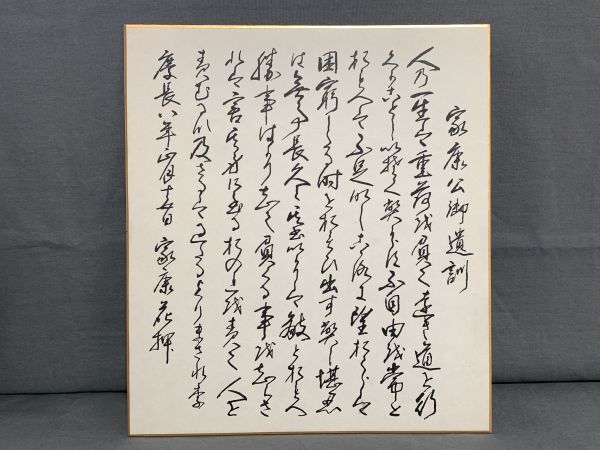 家康公御遺訓
人乃一生は重荷を負て遠き道を行
くかことしいそくへからす不自由を常と
おもへは不足なしこころに望おこらは
困窮したる時をおもひ出すへし堪忍
は無事長久の基いかりは敵とおもへ
勝事はかりしりて負る事をしらさ
れは害其身にいたるおのれを責て人を
責むるな及はさるは過たるよりまされり
慶長八年正月十五日 家康花押